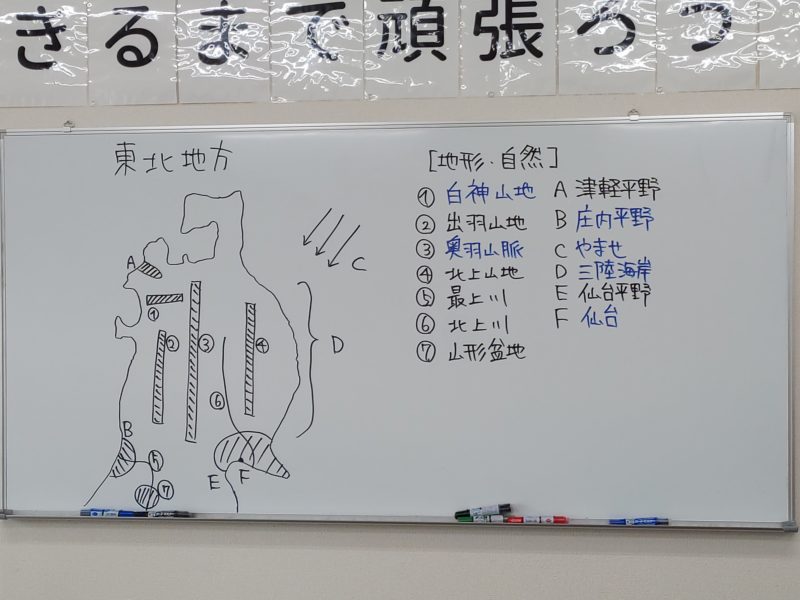 きるまで頑張ろう
東北地方
A
①
②
③
④
⑤
⑥
⑦
B
C
D
E
F
[地形・自然]
① 白神山地 A 津軽平野
② 出羽山地 B 庄内平野
③ 奥羽山脈 C やませ
④ 北上山地 D 三陸海岸
⑤ 最上川 E 仙台平野
⑥ 北上川 F 仙台
⑦ 山形盆地